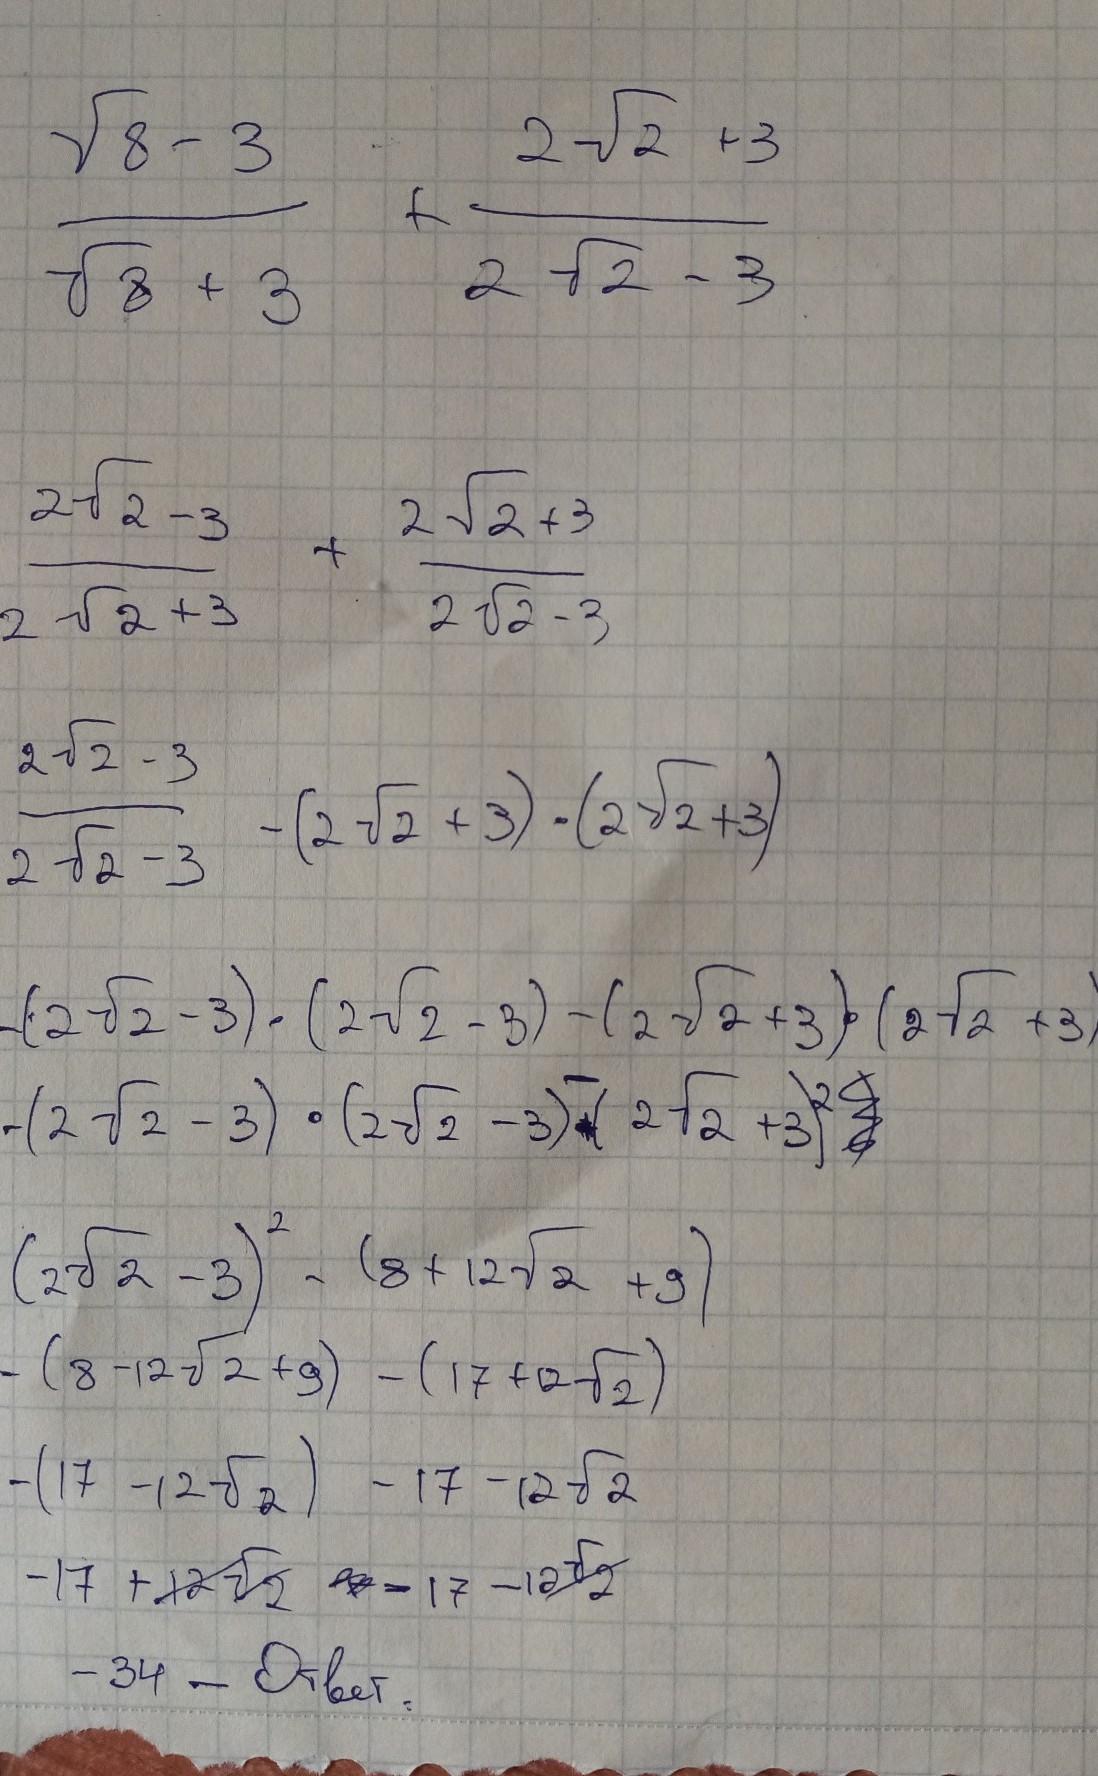 √8 - 3 / √8 + 3 + 2√2 + 3 / 2√2 - 3
2√2 - 3 / 2√2 + 3 + 2√2 + 3 / 2√2 - 3
2√2 - 3 / 2√2 - 3 - (2√2 + 3) · (2√2 + 3)
-(2√2 - 3) · (2√2 - 3) - (2√2 + 3) · (2√2 + 3)
-(2√2 - 3) · (2√2 - 3) - (2√2 + 3)²
(2√2 - 3)² - (8 + 12√2 + 9)
- (8 - 12√2 + 9) - (17 + 12√2)
-(17 - 12√2) - 17 - 12√2
-17 + 12√2 - 17 - 12√2
-34 - Ответ.